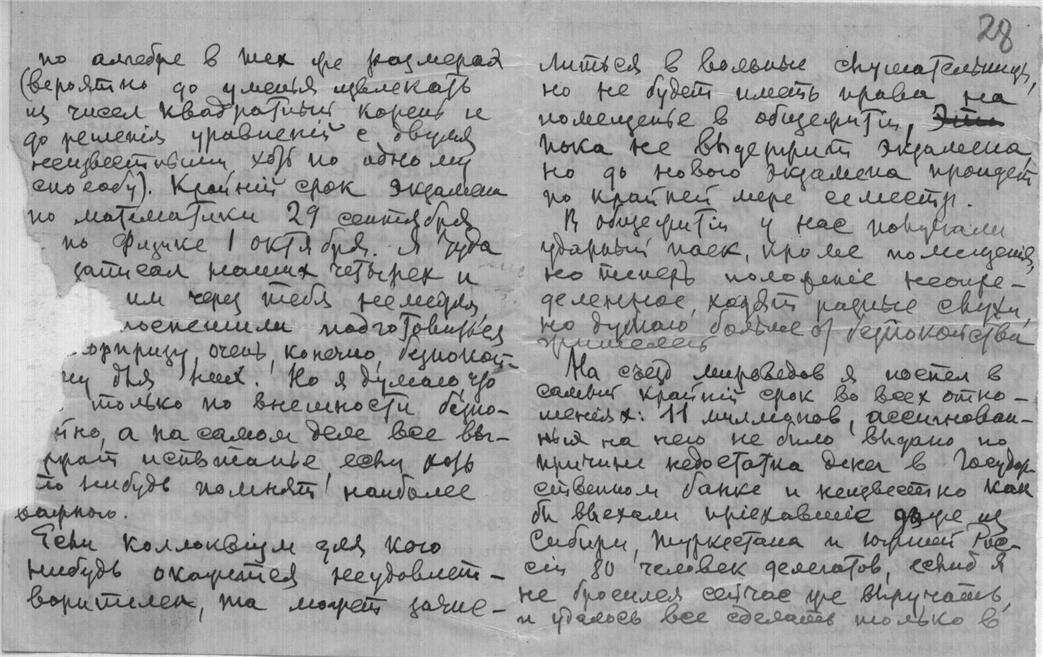 28
по алгебре в тех же размерах
(вероятно до уменья извлекать
из чисел квадратный корень и
до решенія уравненій с двумя
неизвестными хоть по одному
способу). Крайній срок экзамена
по математики 29 сентября
по физике 1 октября. Я туда
записал наших четырех и
им через тебя немедля
поспешили подготовиться
сюрпризу, очень, конечно, безпокой-
му для них. Но я думаю, что
только по внешности безпо-
но, а на самом деле все вы-
жат испытанье, если хоть
то нибудь помнят наиболее
важного.
Если коллоквіум для кого
нибудь окажется неудовлет-
ворителен, та может зачис-
литься в вольные слушательницы,
но не будет иметь права на
помещенье в общежитіи,
пока не выдержит экзамена,
но до нового экзамена пройдет
по крайней мере семестр.
В общежитіи у нас получали
ударный паек, кроме помещенія,
но теперь положеніе неопре-
деленное, ходят разные слухи,
но думаю больше от безпокойства
жителей
На съезд мироведов я поспел в
самый крайній срок во всех отно-
шеніях: 11 миллионов, ассигнован-
ныя на него не было выдано по
причине недостатка денег в Государ-
ственном банке и неизвестно как
бы выехали пріехавшіе уже из
Сибири, Туркестана и южней Рос-
сіи 80 человек делегатов, еслиб я
не бросился сейчас же выручать,
и удалось все сделать только в